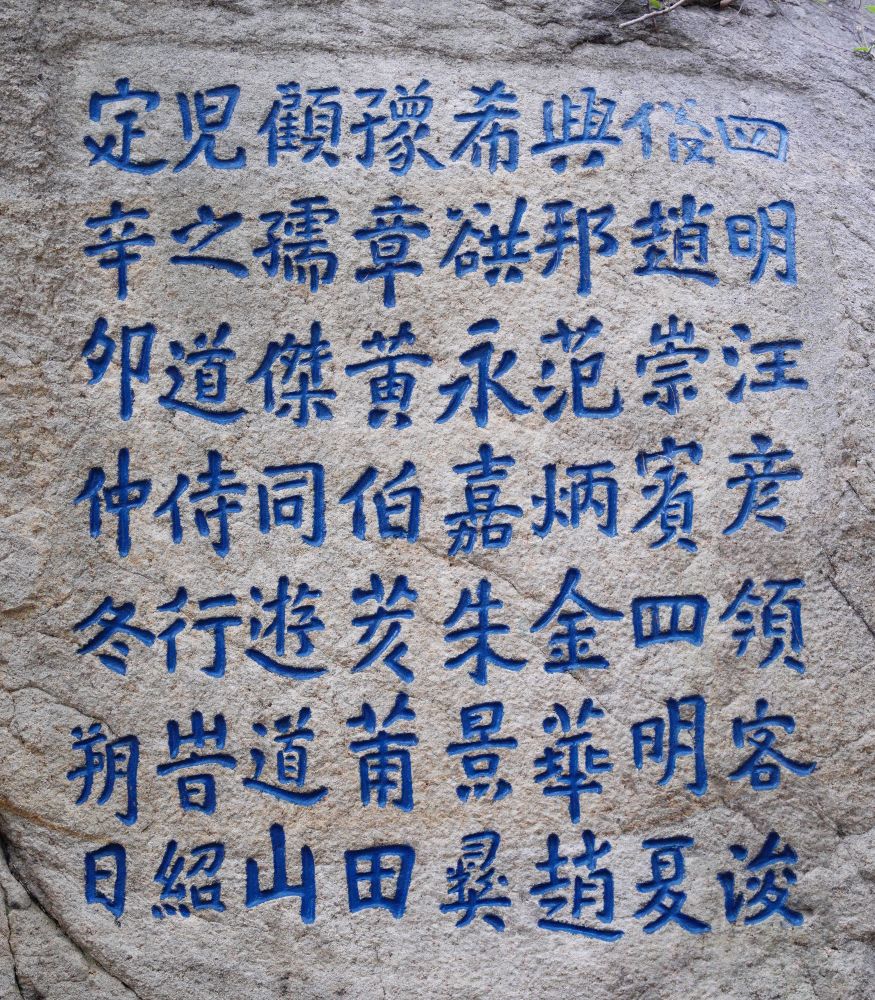 四明汪彦領客浚
俗趙崇賓四明夏
興邦范炳金華趙
希谼永嘉朱景彝
豫章黄伯莆田
顧孺傑同遊道山
児之道侍行旹紹
定辛卯仲冬朔日